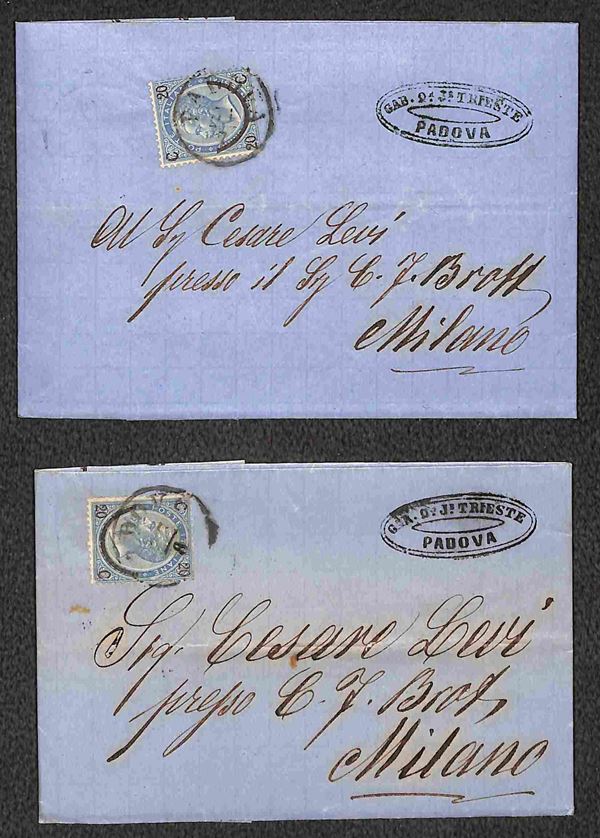 20
C
20
POSTE ITALIANE
GAB. Q.m J.s TRIESTE
PADOVA
Al Sg Cesare Levi
presso il Sg C. J. Brott
Milano
20
C
20
GAB. Q.m J.s TRIESTE
PADOVA
Sig. Cesare Levi
presso C. J. Brot,
Milano